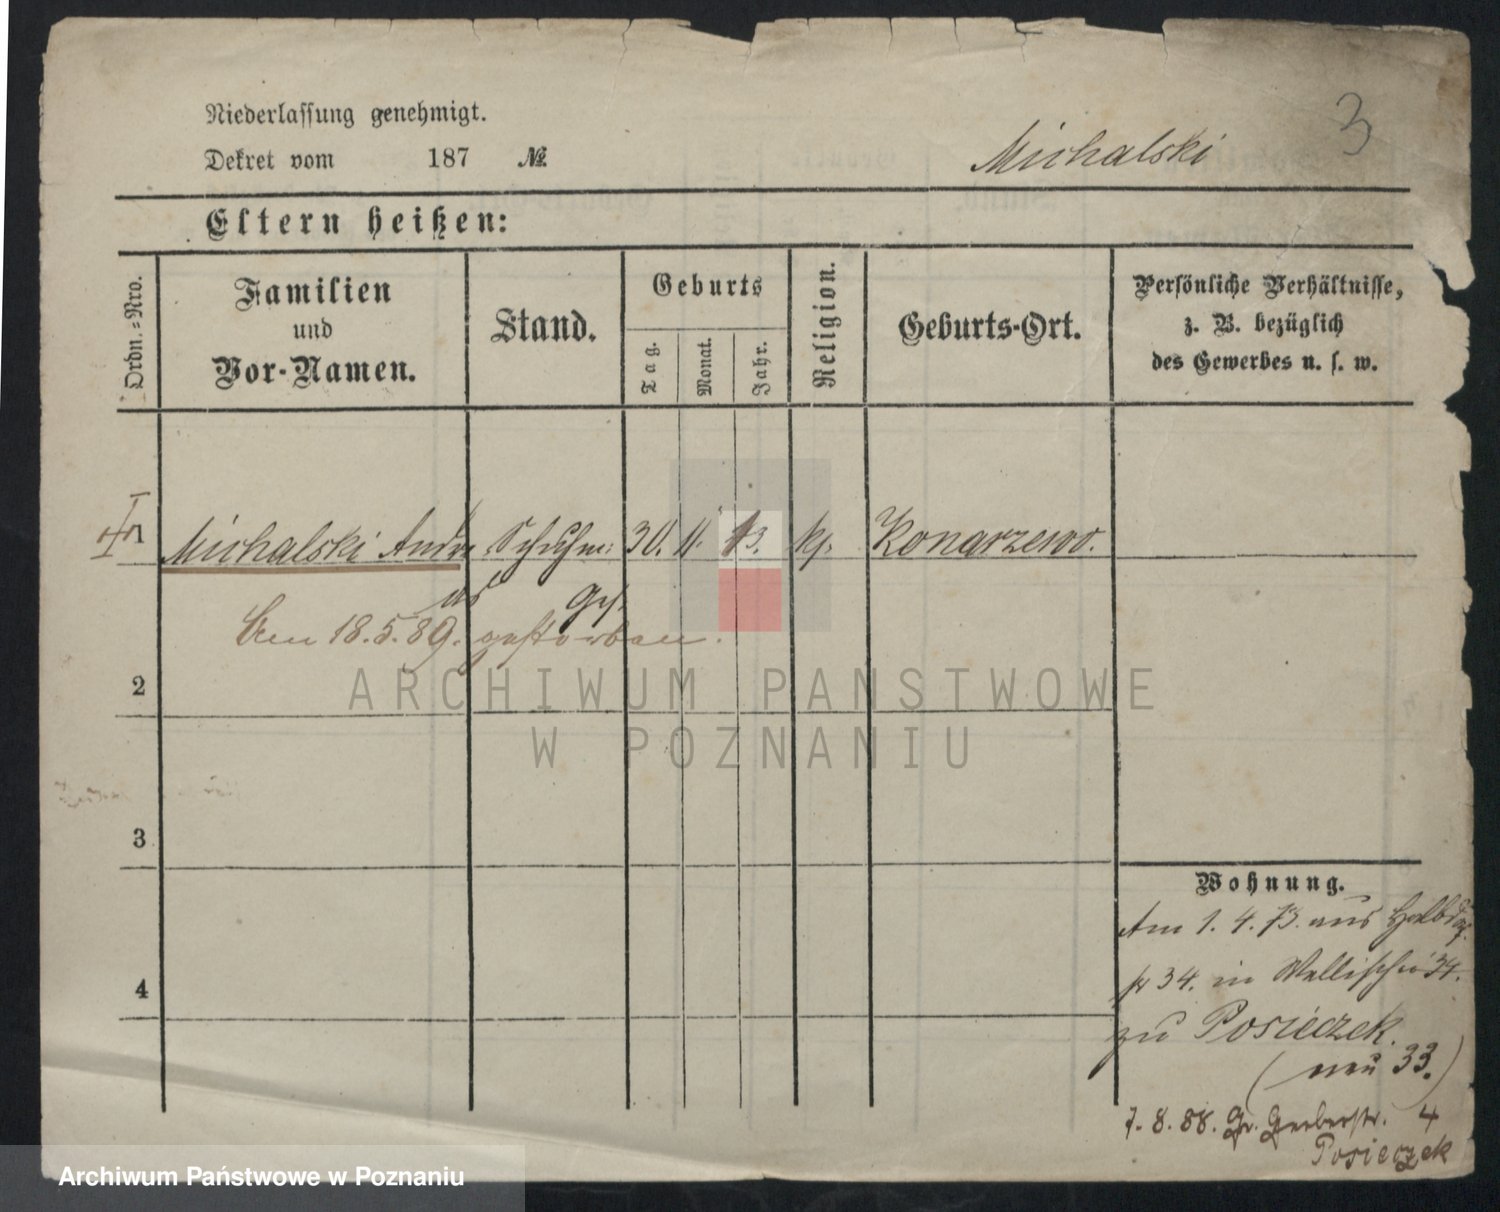 3
Niederlassung genehmigt.
Dekret vom 187 №
Michalski
Eltern heißen:
Ordn.-Nro.
Familien
und
Vor-Namen.
Stand.
Geburts
Tag.
Monat.
Jahr.
Religion.
Geburts-Ort.
Persönliche Verhältnisse,
z. B. bezüglich
des Gewerbes u. s. w.
1 Michalski Andr Schuhm: 30. 11. 13. kf. Konarzewo.
Den 18.5.89. gestorben.
2
ARCHIWUM PAŃSTWOWE
W POZNANIU
3
4
Wohnung.
Am 1. 4. 73. aus
34. in Wallischei 34.
zu Posieczek.
(neu 33.)
7. 8. 88. Gr. Gerberstr. 4
Posieczek
Archiwum Państwowe w Poznaniu